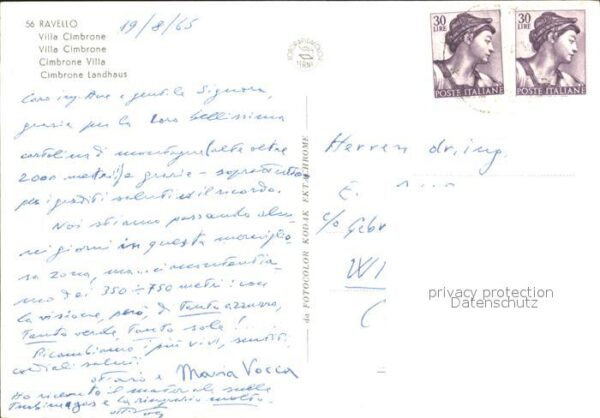 56 RAVELLO
Villa Cimbrone
Villa Cimbrone
Cimbrone Villa
Cimbrone Landhaus
19/8/65
30
LIRE
POSTE ITALIANE
30
LIRE
POSTE ITALIANE
Caro ing. e gentile Signora,
grazie per la Loro bellissima
cartolina di montagna (alta oltre
2000 metri) e grazie - soprattutto
per i graditi saluti ed il ricordo.
Noi stiamo passando alcu-
ni giorni in questa meraviglio-
sa zona, ma... ci accontentia-
mo dei 350 ÷ 750 metri: con
la visione, però, di tanto azzurro,
tanto verde tanto sole!..
Ricambiamo i più vivi, sentiti,
cordiali saluti
e Maria Vocca
Ho ricevuto il materiale sulle
e La ringrazio molto.
da FOTOCOLOR KODAK EKTACHROME
Herren dr. ing.
E.
c/o Gebr
WI
privacy protection
Datenschutz